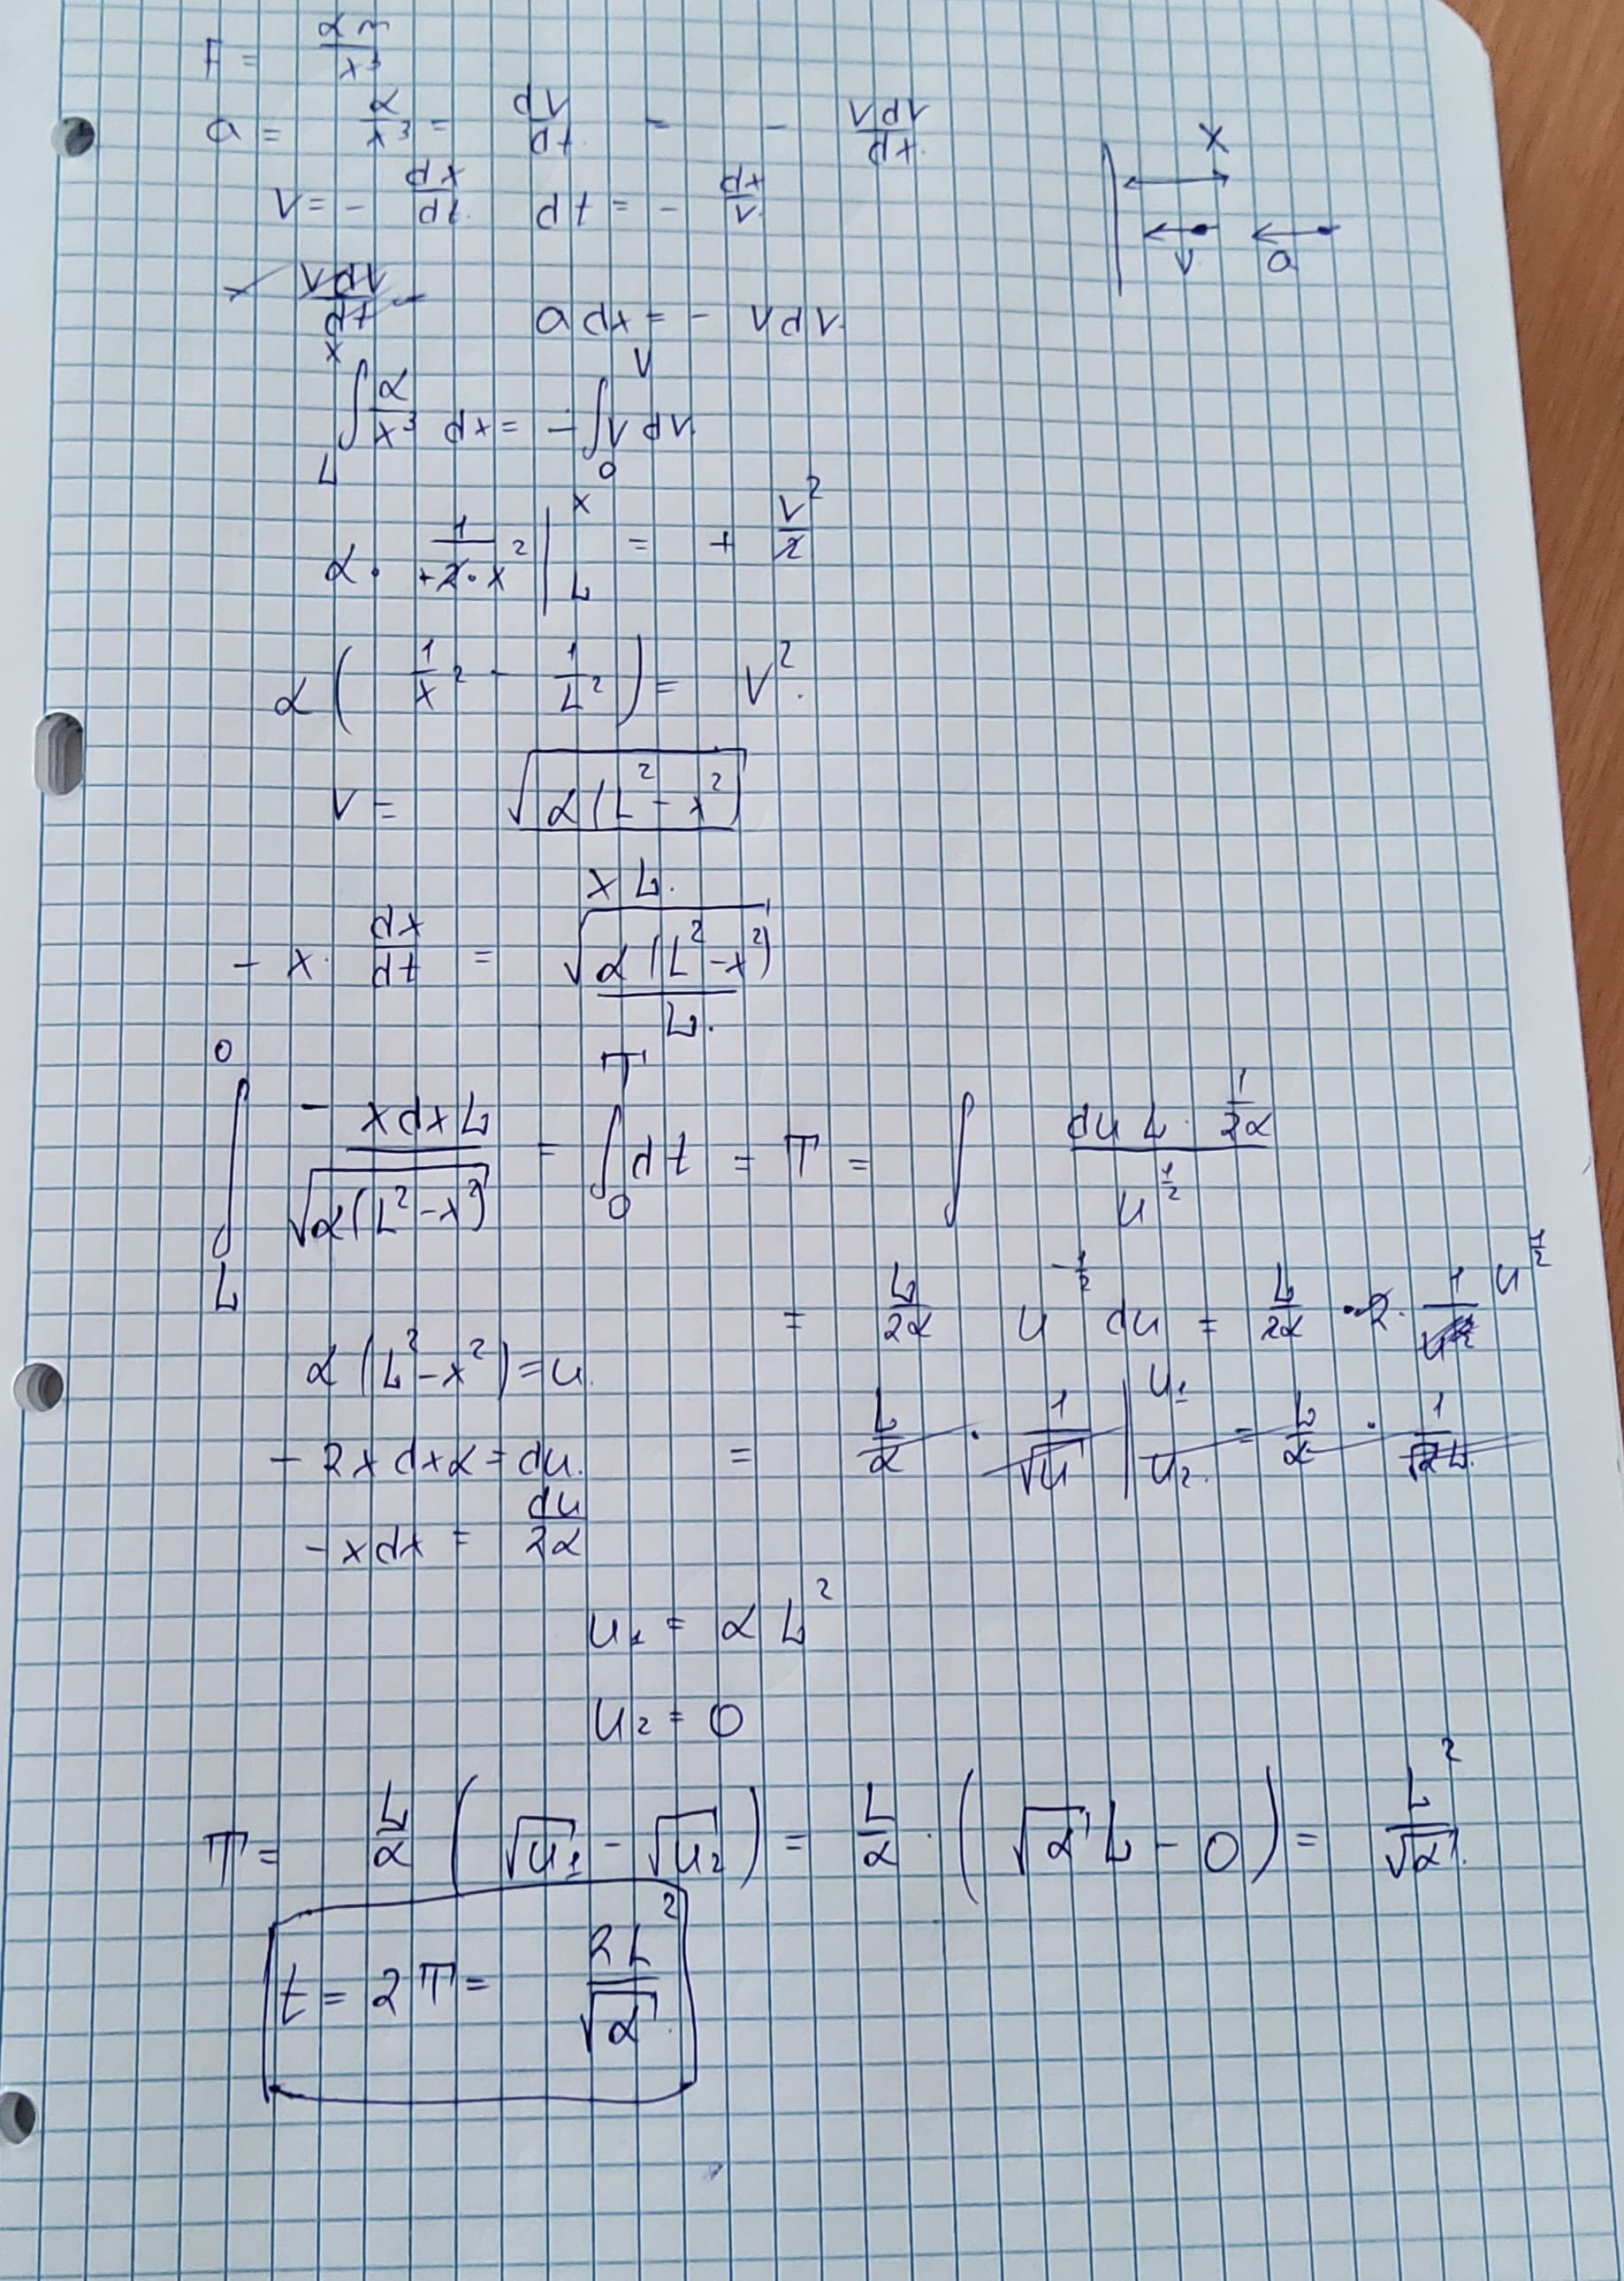 F = αm/x³
a = α/x³ = dv/dt = - vdv/dt.
x
v = - dx/dt. dt = - dx/v.
v a
vdv/dt adx = - vdv.
∫_L^x α/x³ dx = - ∫_0^v v dv.
α · 1/(+2·x²) |_L^x = + v²/2
α ( 1/x² - 1/L² ) = v².
v = √(α(L² - x²)) / xL.
- x · dx/dt = √(α(L² - x²)) / L.
∫_L^0 - xdxL / √(α(L² - x²)) = ∫_0^T dt = T = ∫ du L · 1/2α / u^(1/2)
= L/2α u^(-1/2) du = L/2α · 2 · 1 u^(1/2)
α(L² - x²) = u.
= L/α · 1/√u |_u₂.^u₁ = L/α · 1/√αL.
- 2xdxα = du.
- xdx = du/2α
u₁ = αL²
u₂ = 0
T = L/α ( √u₁ - √u₂ ) = L/α · ( √α L - 0 ) = L²/√α.
t = 2T = 2L²/√α.